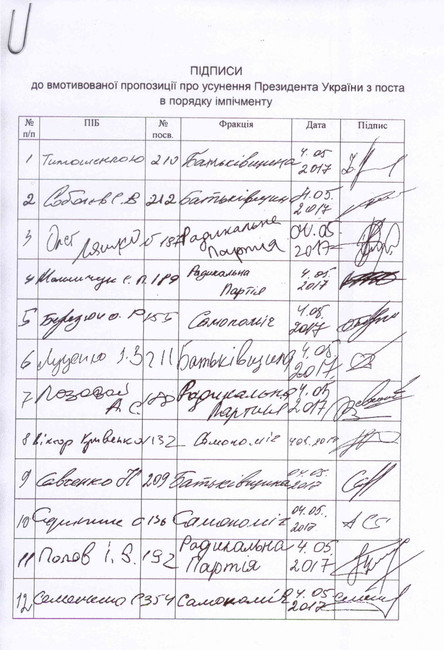 ПІДПИСИ
до вмотивованої пропозиції про усунення Президента України з поста
в порядку імпічменту
№ п/п ПІБ № посв. Фракція Дата Підпис
1 Тимошенко Ю 210 Батьківщина 4.05 2017
2 Соболєв С.В 212 Батьківщин 4.05. 2017
3 Олег Ляшко 187 Радикальна Партія 04.05. 2017
4 189 Радикальна Партія 4.05 2017
5 Березюк О. Р 155 Самопоміч 4.05. 2017
6 Луценко І.В 211 Батьківщина 4.05. 2017
7 Лозовой А С Радикальна Партия 4.05 2017
8 Віктор Кривенко 132 Самопоміч
9 Савченко Н 209 Батьківщина 04.05. 2017
10 136 Самопоміч 04.05. 2017
11 Попов І. В. 192 Радикальна Партія 4.05. 2017.
12 Семенченко С 354 Самопоміч 4.05 2017